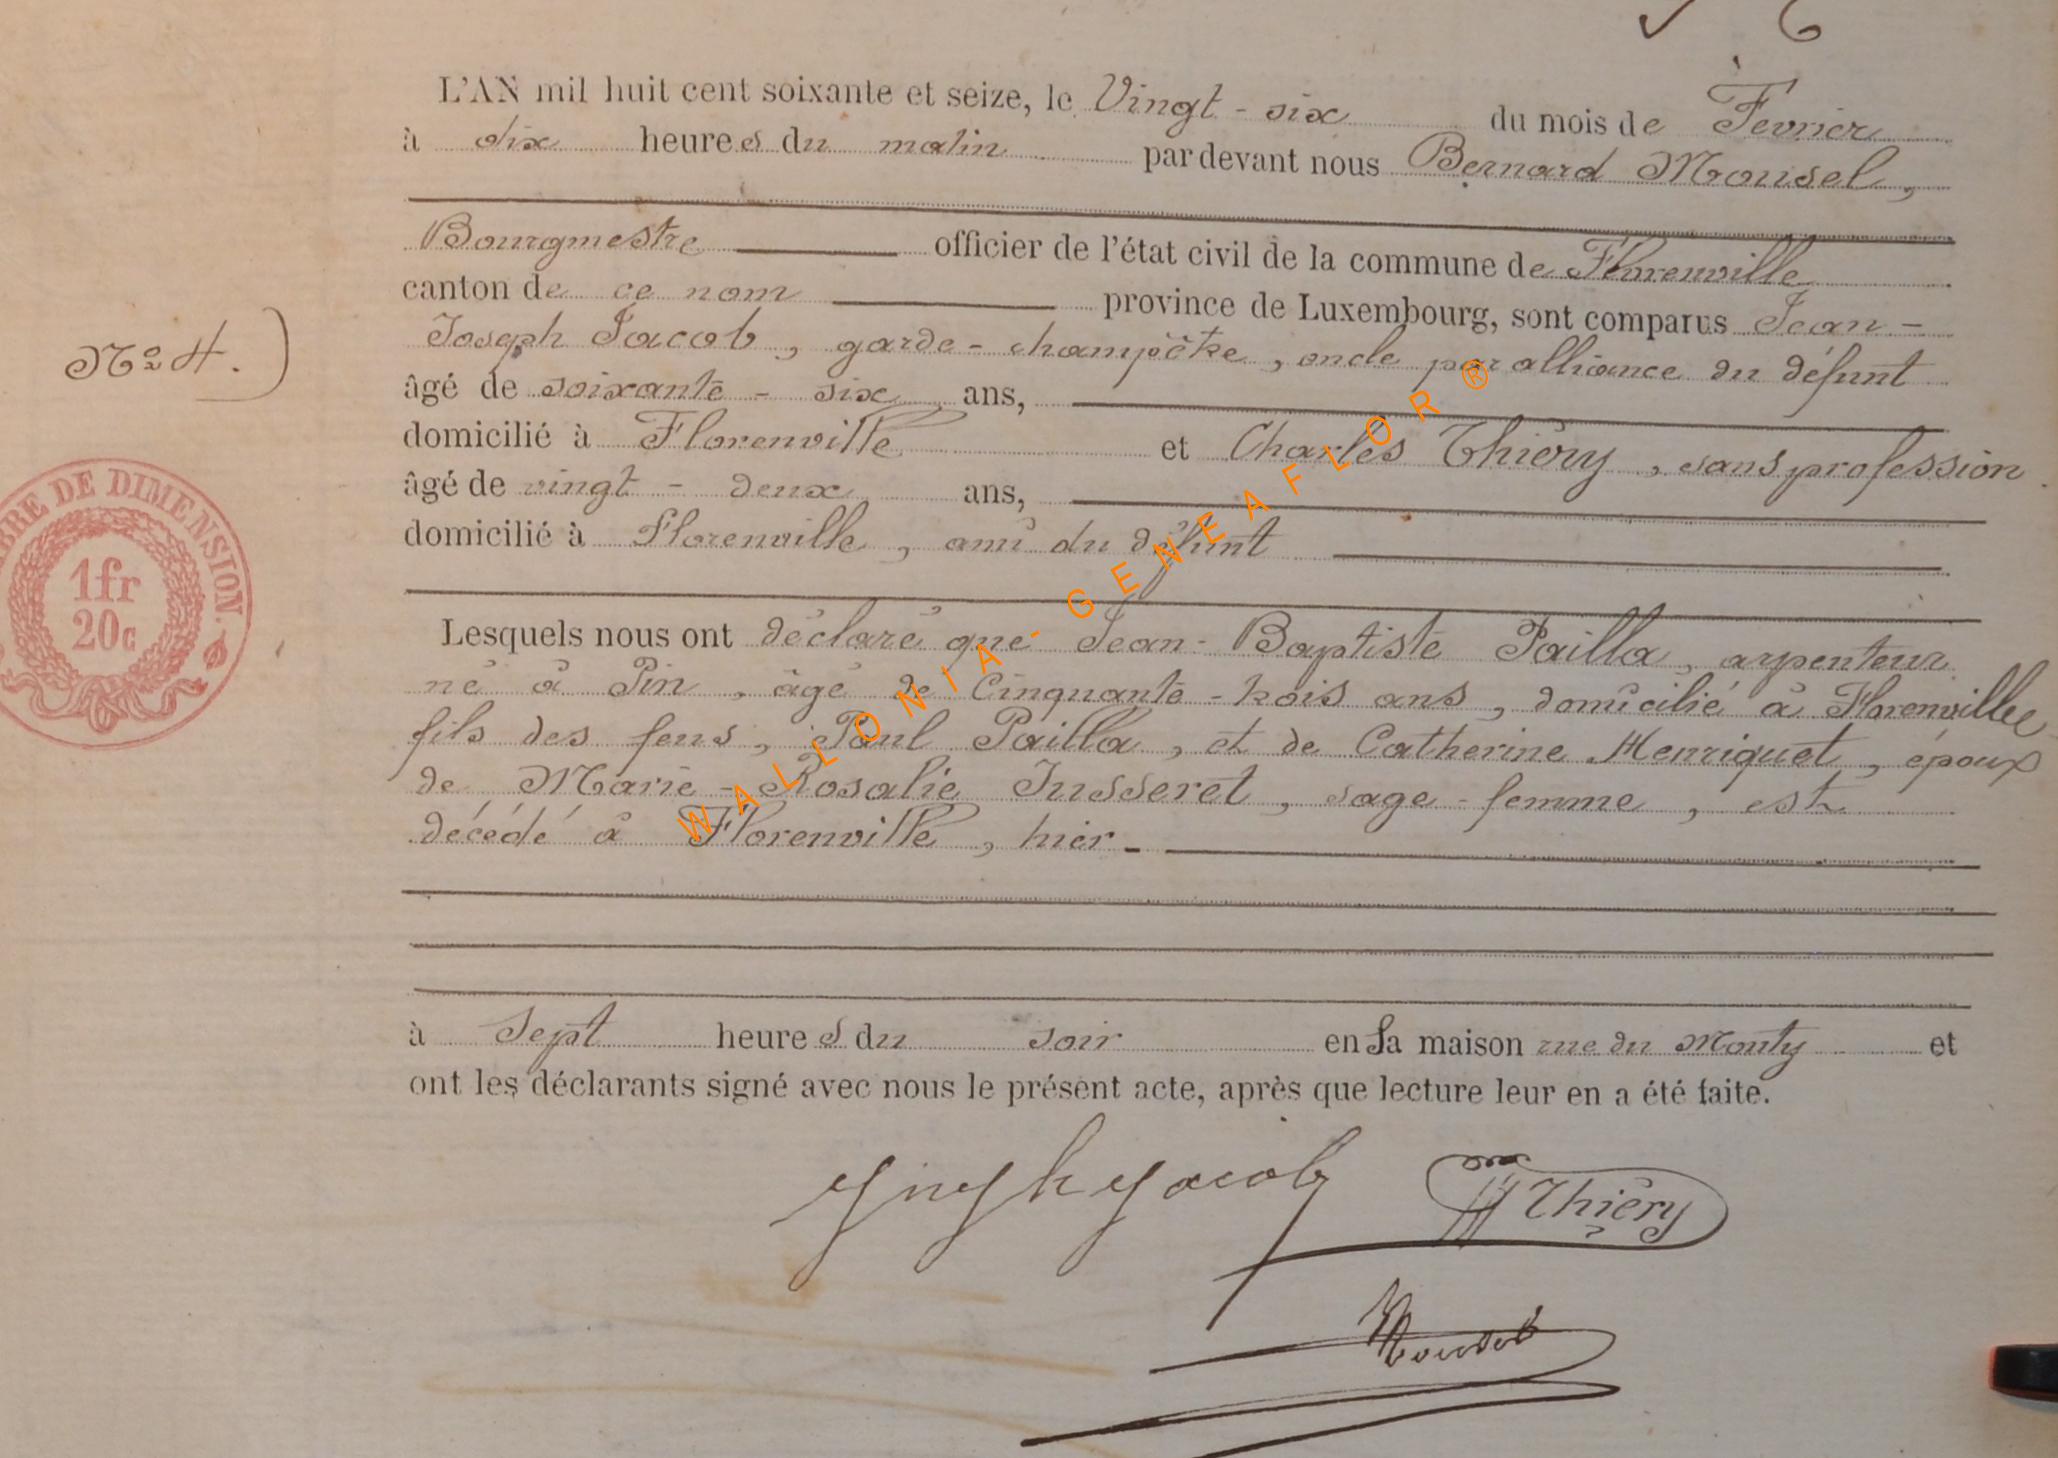 L'AN mil huit cent soixante et seize, le Vingt-six du mois de Fevrier
à dix heures du matin par devant nous Bernard Mousel,
Bourgmestre officier de l'état civil de la commune de Florenville
canton de ce nom province de Luxembourg, sont comparus Jean-
Joseph Jacob, garde-champêtre, oncle par alliance du défunt
âgé de soixante-six ans,
domicilié à Florenville et Charles Thiéry, sans profession
âgé de vingt-deux ans,
domicilié à Florenville, ami du défunt
Lesquels nous ont déclaré que Jean-Baptiste Pailla, arpenteur
né à Pin, âgé de Cinquante-trois ans, domicilié à Florenville
fils des feus, Paul Pailla, et de Catherine Henriquet, époux
de Marie-Rosalie Jusseret, sage-femme, est
décédé à Florenville, hier
à Sept heures du soir en sa maison rue du Monty et
ont les déclarants signé avec nous le présent acte, après que lecture leur en a été faite.
Jacob Thiéry
Mousel
No 4.
TIMBRE DE DIMENSION.
1fr
20c
WALLONIA-GENEAFLOR®